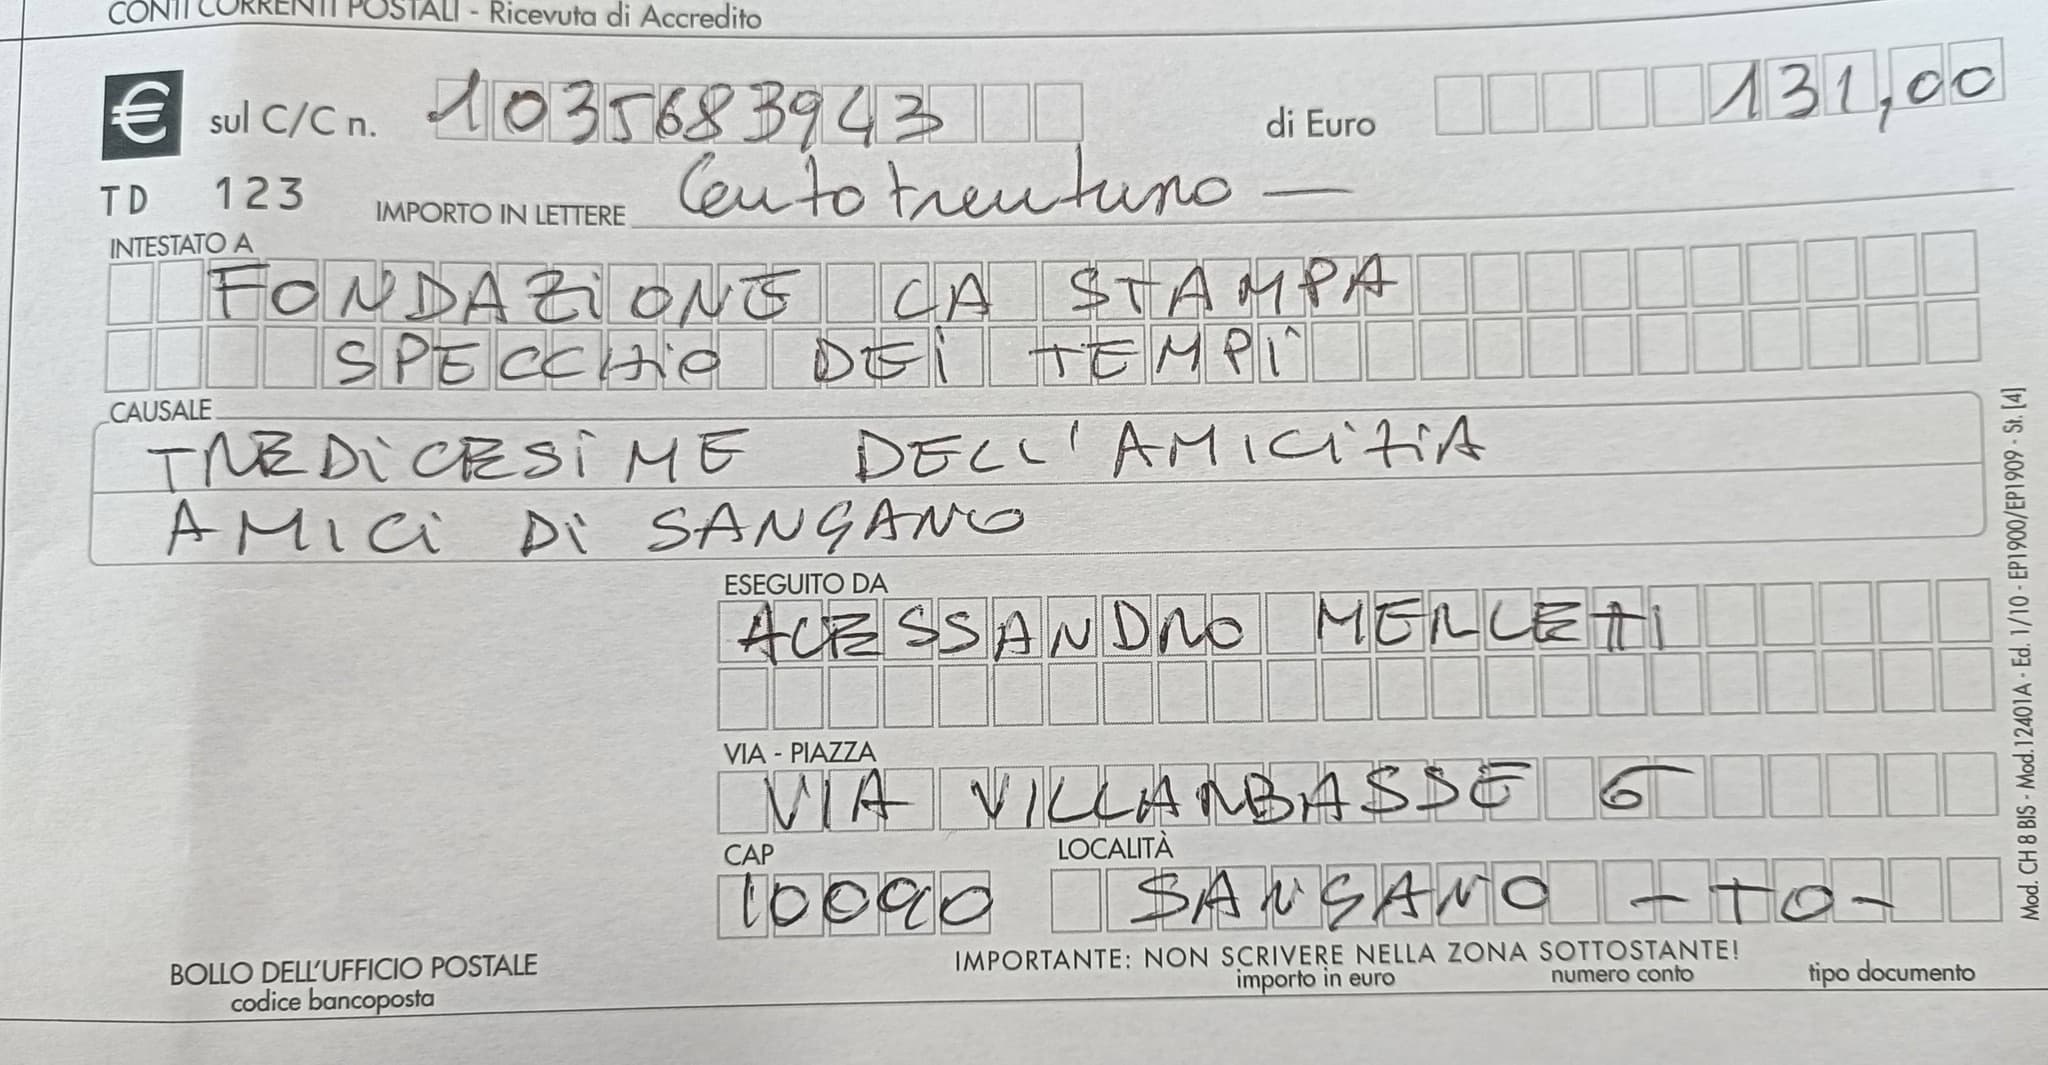 CONTI CORRENTI POSTALI - Ricevuta di Accredito
€ sul C/C n. 1035683943 di Euro 131,00
TD 123 IMPORTO IN LETTERE Centotrentuno —
INTESTATO A
FONDAZIONE LA STAMPA
SPECCHIO DEI TEMPI
CAUSALE
TREDICESIME DELL'AMICIZIA
AMICI DI SANGANO
ESEGUITO DA
ALESSANDRO MERLETTI
VIA - PIAZZA
VIA VILLARBASSE 6
CAP LOCALITÀ
10090 SANGANO - TO -
IMPORTANTE: NON SCRIVERE NELLA ZONA SOTTOSTANTE!
BOLLO DELL'UFFICIO POSTALE importo in euro numero conto tipo documento
codice bancoposta
Mod. CH 8 BIS - Mod.12401A - Ed. 1/10 - EP1900/EP1909 - St. [4]